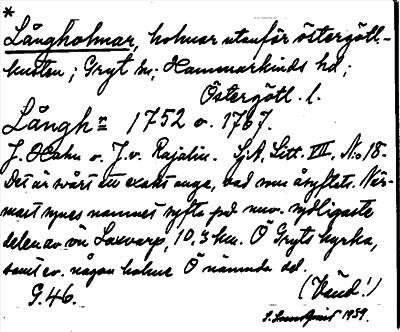 *
Långholmar, holmar utanför östergötl.-
kusten; Gryt sn; Hammarkinds hd;
Östergötl. l.
Långh n 1752 o. 1767.
J. Hahn o. J. v. Rajalin. SjA. Litt. VIII. No 18.
Det är svårt att exakt ange, vad som åsyftats. När-
mast synes namnet syfta på nuv. sydligaste
delen av ön Laxvarp, 10,3 km. Ö Gryts kyrka,
samt ev. någon holme Ö nämnda del.
(Vänd!)
G.46.
1939.